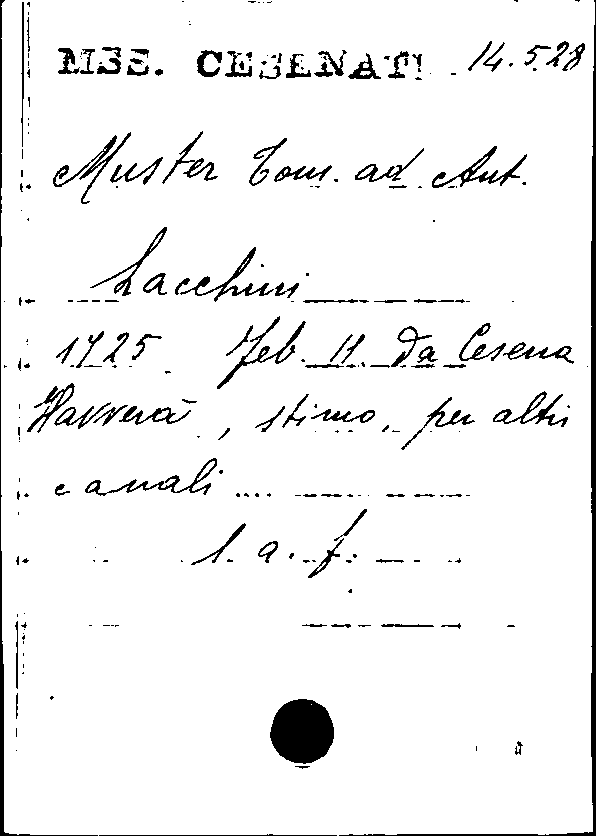 MSS. CESENATI 14.5.28
Muster Tom. ad Ant.
Lacchini
1725 Feb. 11. Da Cesena
"Havverà, stimo, per altri
canali ....
l. a. f.